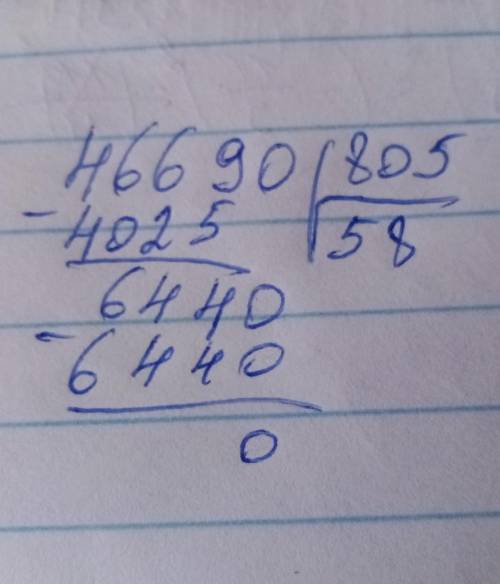 46690 805
- 4025 58
6440
- 6440
0